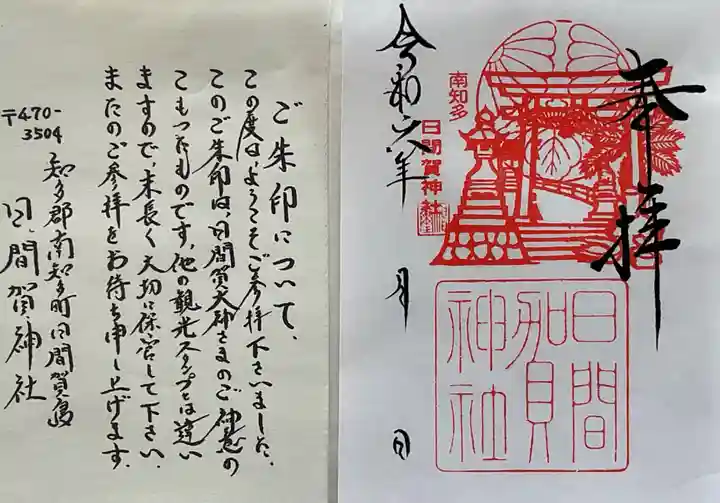 ご朱印について、
この度は、ようこそご参拝下さいました。
このご朱印は、日間賀大神さまのご神意の
こもったものです。他の観光スタンプとは違い
ますので、末長く大切に保管して下さい。
またのご参拝をお待ち申し上げます。
〒470-
3504
知多郡南知多町日間賀島
日間賀神社
奉拝
南知多
日間賀神社
令和六年
月
日
日間
賀
神社